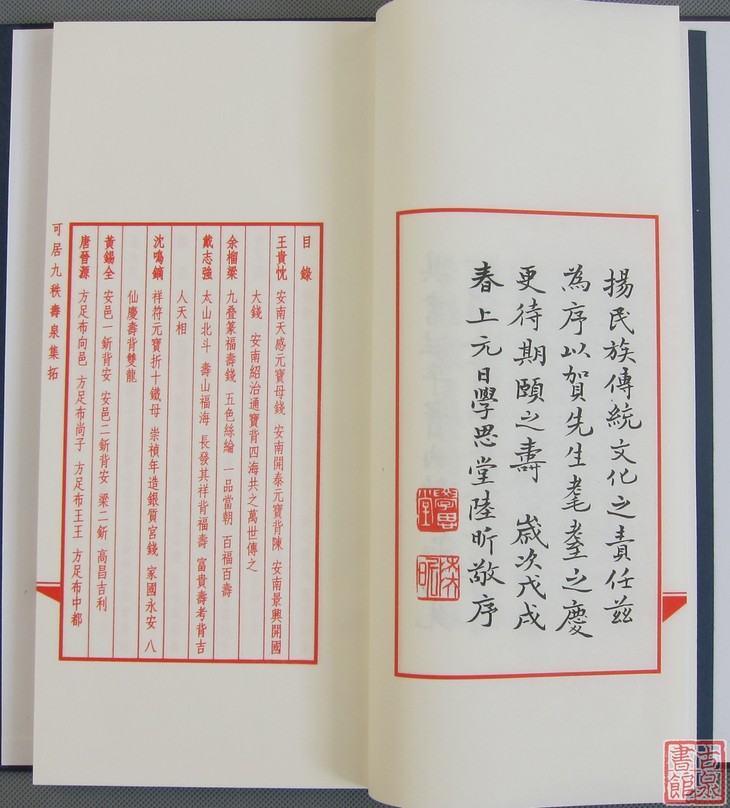 揚民族傳統文化之責任茲
為序以賀先生耄耋之慶
更待期頤之壽 歲次戊戌
春上元日學思堂陸昕敬序
學思堂
陸昕
目錄
王貴忱 安南天感元寶母錢 安南開泰元寶背陳 安南景興開國
大錢 安南紹治通寶背四海共之萬世傳之
余榴梁 九叠篆福壽錢 五色絲綸 一品當朝 百福百壽
戴志強 太山北斗 壽山福海 長發其祥背福壽 富貴壽考背吉
人天相
沈鳴鏑 祥符元寶折十鐵母 崇禎年造銀質宮錢 家國永安 八
仙慶壽背雙龍
黃錫全 安邑一釿背安 安邑二釿背安 梁二釿 高昌吉利
唐晉源 方足布向邑 方足布尚子 方足布王王 方足布中都
可居九秩壽泉集拓
古泉書館